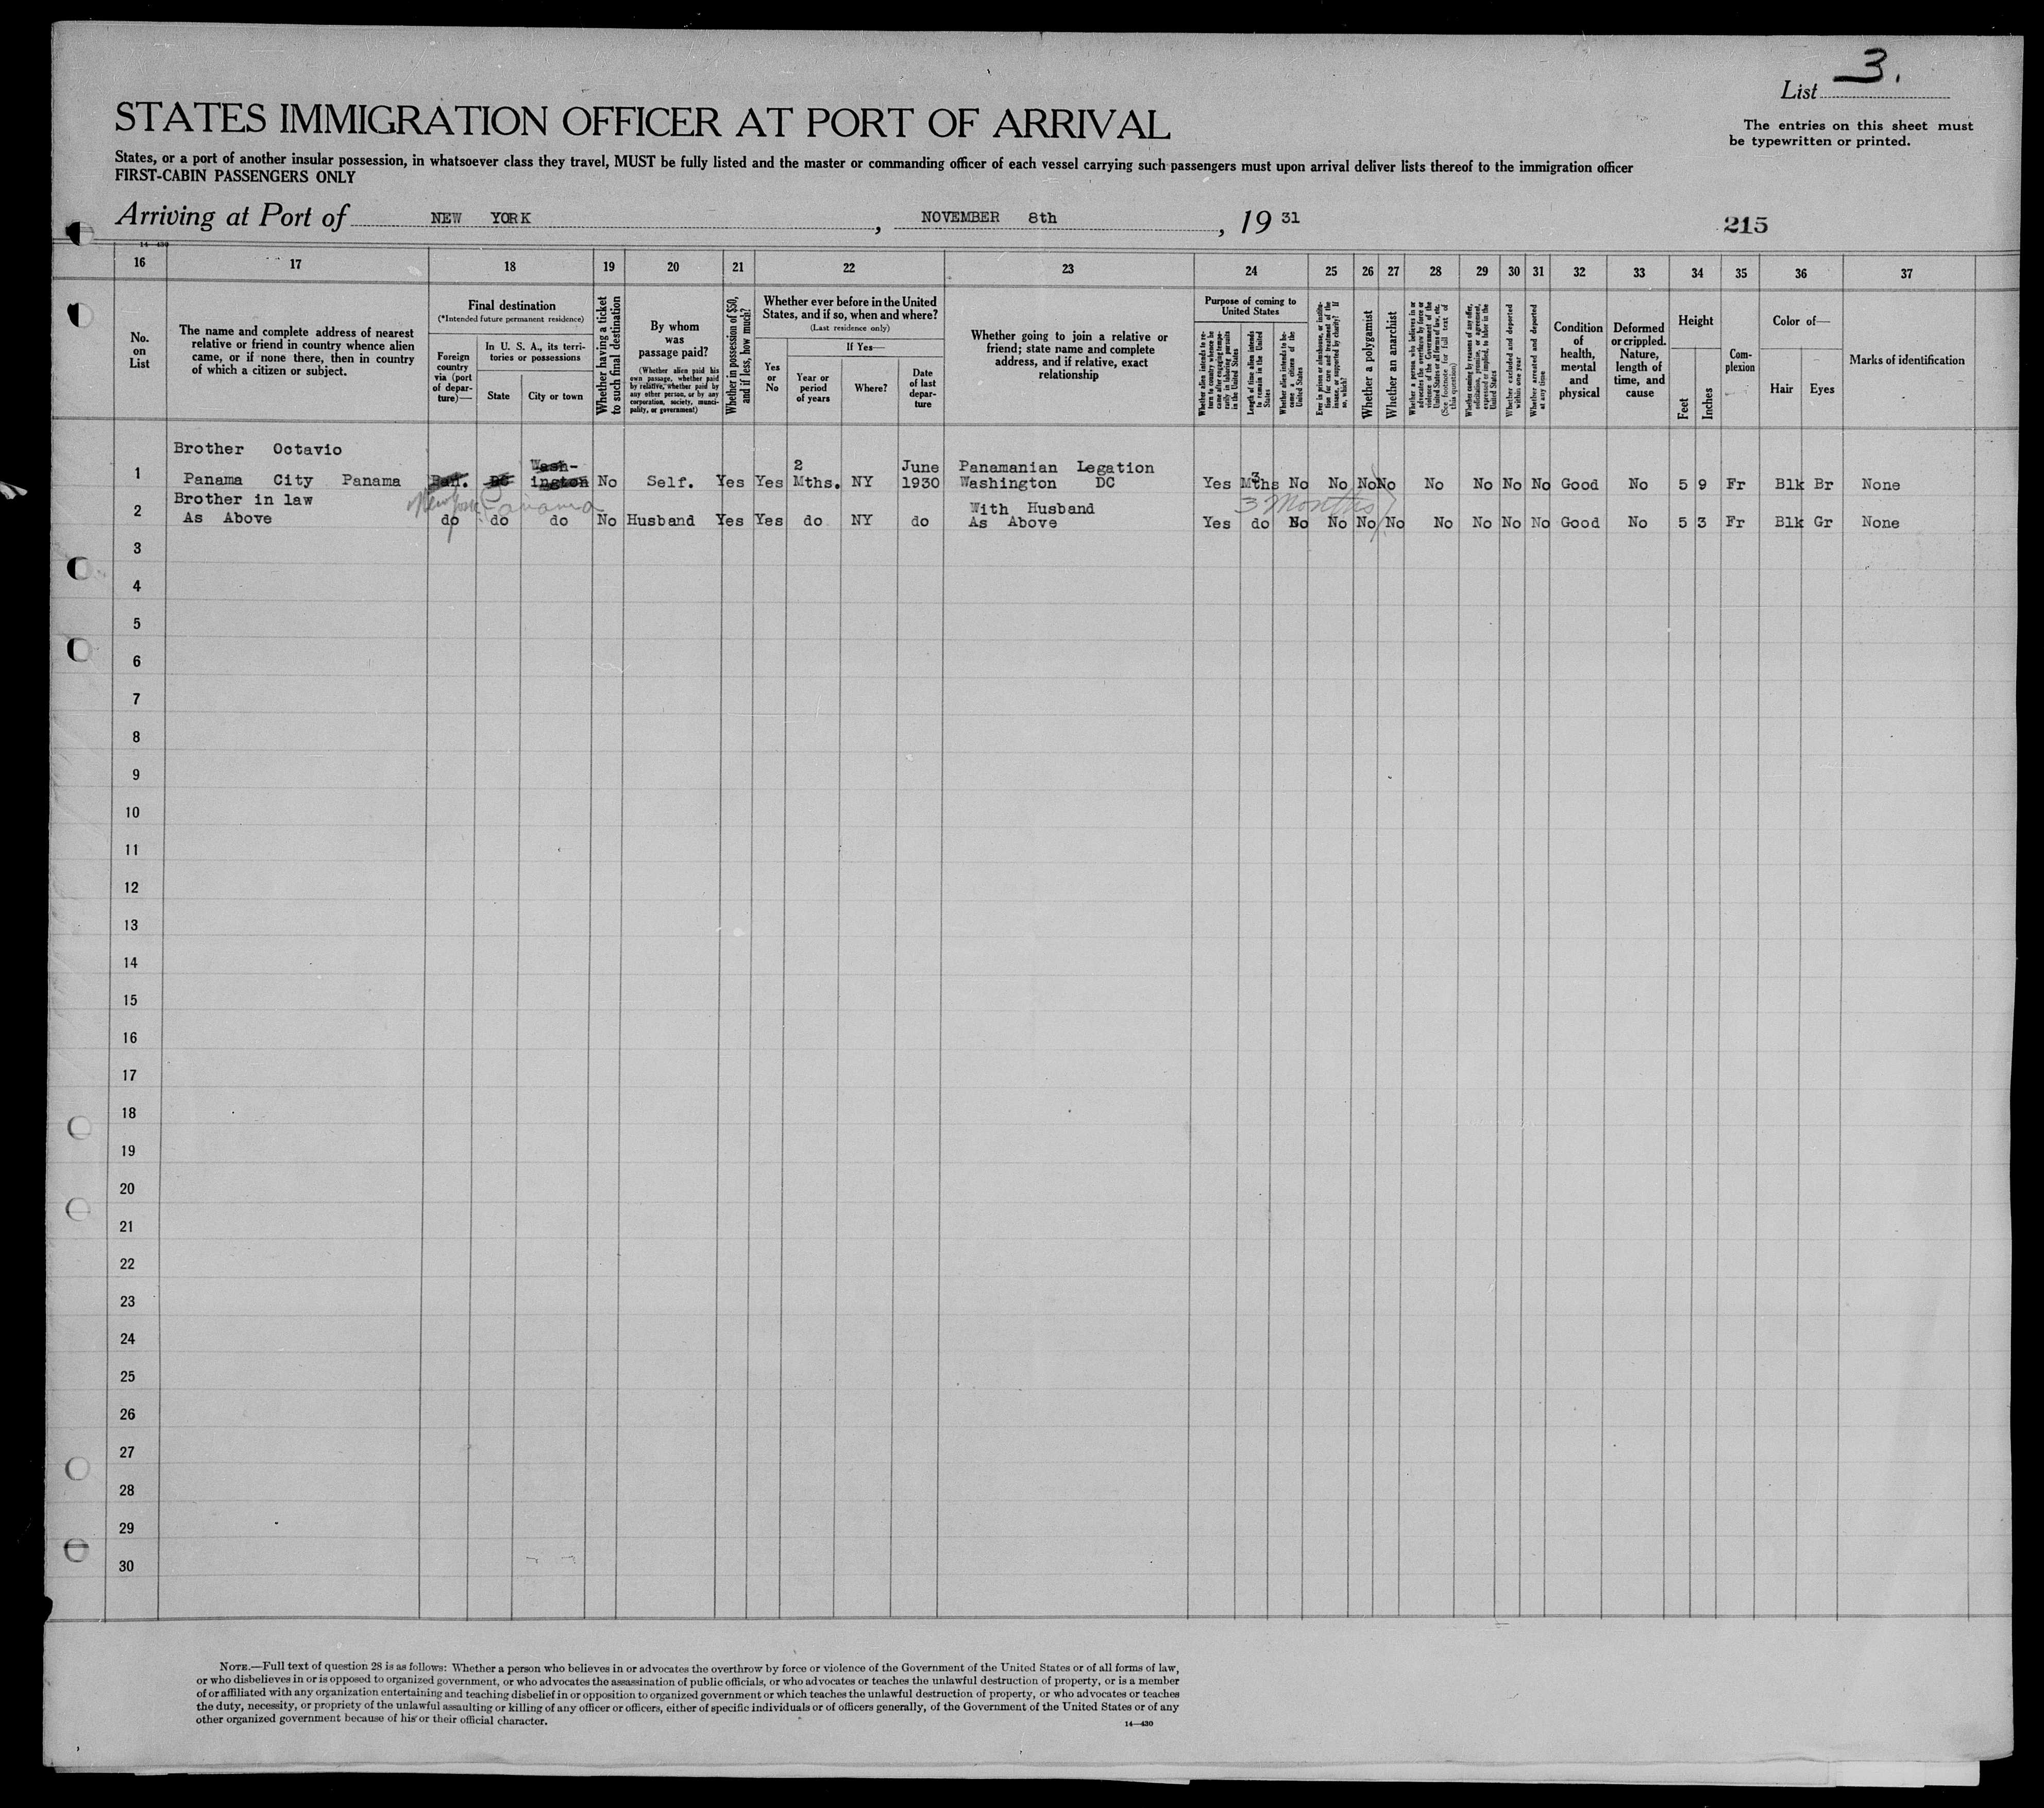 List 3.
STATES IMMIGRATION OFFICER AT PORT OF ARRIVAL
The entries on this sheet must
be typewritten or printed.
States, or a port of another insular possession, in whatsoever class they travel, MUST be fully listed and the master or commanding officer of each vessel carrying such passengers must upon arrival deliver lists thereof to the immigration officer
FIRST-CABIN PASSENGERS ONLY
Arriving at Port of NEW YORK , NOVEMBER 8th , 19 31
215
14—430
16 17 18 19 20 21 22 23 24 25 26 27 28 29 30 31 32 33 34 35 36 37
No.
on
List
The name and complete address of nearest
relative or friend in country whence alien
came, or if none there, then in country
of which a citizen or subject.
Final destination
(*Intended future permanent residence)
Foreign
country
via (port
of depar-
ture)—
In U. S. A., its terri-
tories or possessions
State
City or town
Whether having a ticket
to such final destination
By whom
was
passage paid?
(Whether alien paid his
own passage, whether paid
by relative, whether paid by
any other person, or by any
corporation, society, munici-
pality, or government)
Whether in possession of $50,
and if less, how much?
Whether ever before in the United
States, and if so, when and where?
(Last residence only)
Yes
or
No
If Yes—
Year or
period
of years
Where?
Date
of last
depar-
ture
Whether going to join a relative or
friend; state name and complete
address, and if relative, exact
relationship
Purpose of coming to
United States
Whether alien intends to re-
turn to country whence he
came after engaging tempo-
rarily in laboring pursuits
in the United States
Length of time alien intends
to remain in the United
States
Whether alien intends to be-
come a citizen of the
United States
Ever in prison or almshouse, or institu-
tion for care and treatment of the
insane, or supported by charity? If
so, which?
Whether a polygamist
Whether an anarchist
Whether a person who believes in or
advocates the overthrow by force or
violence of the Government of the
United States or all forms of law, etc.
(See footnote for full text of
this question)
Whether coming by reasons of any offer,
solicitation, promise, or agreement,
expressed or implied, to labor in the
United States
Whether excluded and deported
within one year
Whether arrested and deported
at any time
Condition
of
health,
mental
and
physical
Deformed
or crippled.
Nature,
length of
time, and
cause
Height
Feet
Inches
Com-
plexion
Color of—
Hair
Eyes
Marks of identification
Brother Octavio
1 Panama City Panama Pan. DC Wash-
ington No Self. Yes Yes 2
Mths. NY June
1930 Panamanian Legation
Washington DC Yes 3
Mths No No No No No No No No Good No 5 9 Fr Blk Br None
New York Panama 3 Months
Brother in law With Husband
2 As Above do do do No Husband Yes Yes do NY do As Above Yes do No No No No No No No No Good No 5 3 Fr Blk Gr None
3
4
5
6
7
8
9
10
11
12
13
14
15
16
17
18
19
20
21
22
23
24
25
26
27
28
29
30
NOTE.—Full text of question 28 is as follows: Whether a person who believes in or advocates the overthrow by force or violence of the Government of the United States or of all forms of law,
or who disbelieves in or is opposed to organized government, or who advocates the assassination of public officials, or who advocates or teaches the unlawful destruction of property, or is a member
of or affiliated with any organization entertaining and teaching disbelief in or opposition to organized government or which teaches the unlawful destruction of property, or who advocates or teaches
the duty, necessity, or propriety of the unlawful assaulting or killing of any officer or officers, either of specific individuals or of officers generally, of the Government of the United States or of any
other organized government because of his or their official character.
14—430